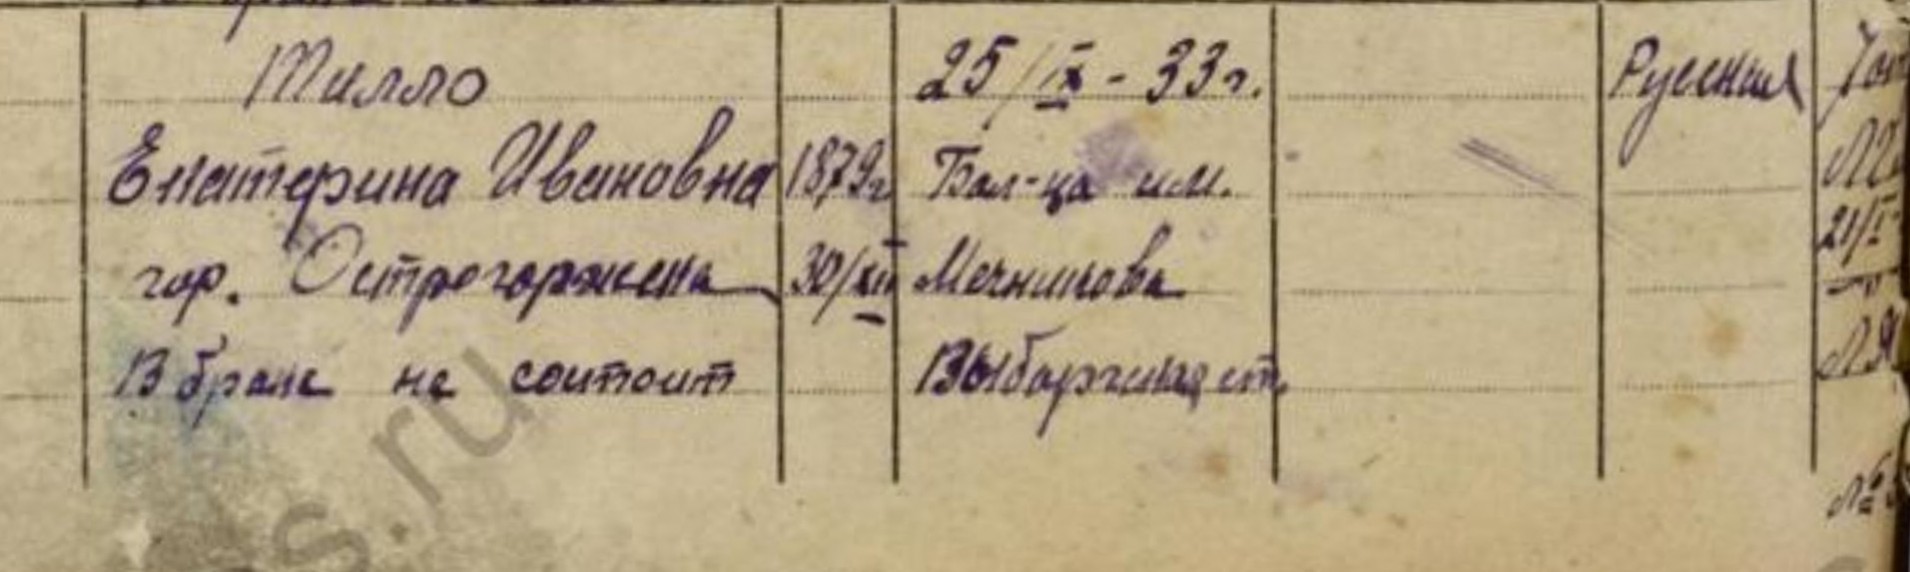 Тилло
Екатерина Ивановна
гор. Острогоржска
В браке не состоит
1879г
30/XII
25/IX - 33г.
Бол-ца им.
Мечникова
Выборжская ст.
Русская
21/I
s.ru